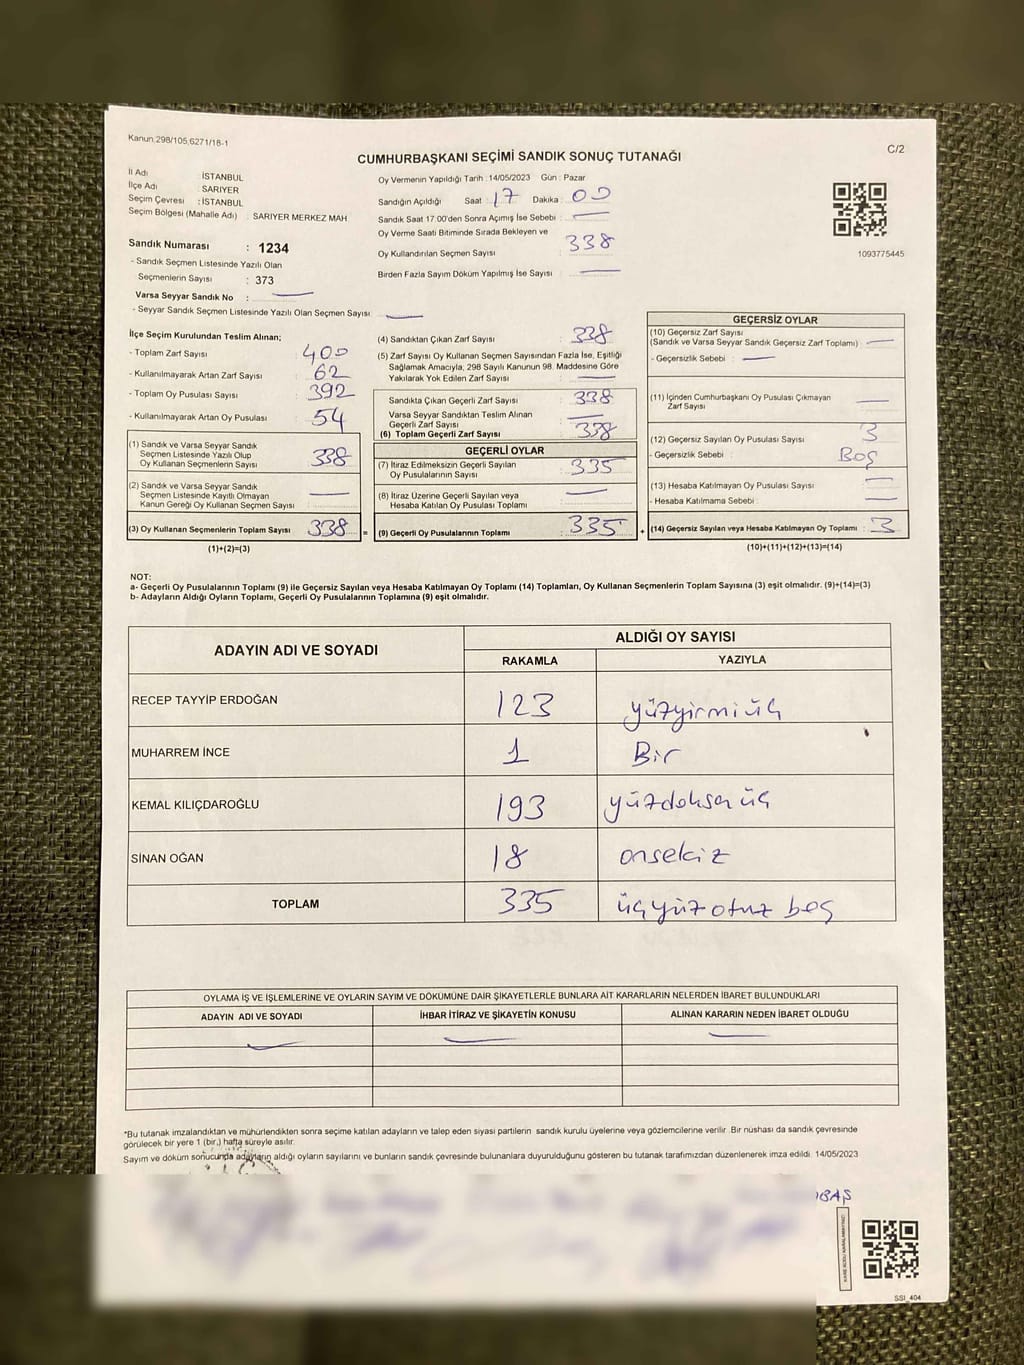 Kanun.298/105,6271/18-1
C/2
CUMHURBAŞKANI SEÇİMİ SANDIK SONUÇ TUTANAĞI
İl Adı : İSTANBUL
İlçe Adı : SARIYER
Seçim Çevresi : İSTANBUL
Seçim Bölgesi (Mahalle Adı) : SARIYER MERKEZ MAH
Sandık Numarası : 1234
- Sandık Seçmen Listesinde Yazılı Olan
Seçmenlerin Sayısı : 373
Varsa Seyyar Sandık No :
- Seyyar Sandık Seçmen Listesinde Yazılı Olan Seçmen Sayısı :
Oy Vermenin Yapıldığı Tarih : 14/05/2023 Gün : Pazar
Sandığın Açıldığı Saat : 17 Dakika : 00
Sandık Saat 17:00'den Sonra Açımış İse Sebebi :
Oy Verme Saati Bitiminde Sırada Bekleyen ve
Oy Kullandırılan Seçmen Sayısı : 338
Birden Fazla Sayım Döküm Yapılmış İse Sayısı :
1093775445
İlçe Seçim Kurulundan Teslim Alınan;
- Toplam Zarf Sayısı : 400
- Kullanılmayarak Artan Zarf Sayısı : 62
- Toplam Oy Pusulası Sayısı : 392
- Kullanılmayarak Artan Oy Pusulası : 54
(1) Sandık ve Varsa Seyyar Sandık
Seçmen Listesinde Yazılı Olup
Oy Kullanan Seçmenlerin Sayısı : 338
(2) Sandık ve Varsa Seyyar Sandık
Seçmen Listesinde Kayıtlı Olmayan
Kanun Gereği Oy Kullanan Seçmen Sayısı :
(3) Oy Kullanan Seçmenlerin Toplam Sayısı : 338 =
(1)+(2)=(3)
(4) Sandıktan Çıkan Zarf Sayısı : 338
(5) Zarf Sayısı Oy Kullanan Seçmen Sayısından Fazla İse, Eşitliği
Sağlamak Amacıyla, 298 Sayılı Kanunun 98. Maddesine Göre
Yakılarak Yok Edilen Zarf Sayısı :
Sandıkta Çıkan Geçerli Zarf Sayısı : 338
Varsa Seyyar Sandıktan Teslim Alınan
Geçerli Zarf Sayısı :
(6) Toplam Geçerli Zarf Sayısı : 338
GEÇERLİ OYLAR
(7) İtiraz Edilmeksizin Geçerli Sayılan
Oy Pusulalarının Sayısı : 335
(8) İtiraz Üzerine Geçerli Sayılan veya
Hesaba Katılan Oy Pusulası Toplamı :
(9) Geçerli Oy Pusulalarının Toplamı : 335 +
GEÇERSİZ OYLAR
(10) Geçersiz Zarf Sayısı
(Sandık ve Varsa Seyyar Sandık Geçersiz Zarf Toplamı) :
- Geçersizlik Sebebi :
(11) İçinden Cumhurbaşkanı Oy Pusulası Çıkmayan
Zarf Sayısı :
(12) Geçersiz Sayılan Oy Pusulası Sayısı : 3
- Geçersizlik Sebebi : Boş
(13) Hesaba Katılmayan Oy Pusulası Sayısı :
- Hesaba Katılmama Sebebi :
(14) Geçersiz Sayılan veya Hesaba Katılmayan Oy Toplamı : 3
(10)+(11)+(12)+(13)=(14)
NOT:
a- Geçerli Oy Pusulalarının Toplamı (9) ile Geçersiz Sayılan veya Hesaba Katılmayan Oy Toplamı (14) Toplamları, Oy Kullanan Seçmenlerin Toplam Sayısına (3) eşit olmalıdır. (9)+(14)=(3)
b- Adayların Aldığı Oyların Toplamı, Geçerli Oy Pusulalarının Toplamına (9) eşit olmalıdır.
ADAYIN ADI VE SOYADI
ALDIĞI OY SAYISI
RAKAMLA YAZIYLA
RECEP TAYYİP ERDOĞAN 123 yüzyirmi üç
MUHARREM İNCE 1 Bir
KEMAL KILIÇDAROĞLU 193 yüzdoksan üç
SİNAN OĞAN 18 onsekiz
TOPLAM 335 üçyüz otuz beş
OYLAMA İŞ VE İŞLEMLERİNE VE OYLARIN SAYIM VE DÖKÜMÜNE DAİR ŞİKAYETLERLE BUNLARA AİT KARARLARIN NELERDEN İBARET BULUNDUKLARI
ADAYIN ADI VE SOYADI İHBAR İTİRAZ VE ŞİKAYETİN KONUSU ALINAN KARARIN NEDEN İBARET OLDUĞU
*Bu tutanak imzalandıktan ve mühürlendikten sonra seçime katılan adayların ve talep eden siyasi partilerin sandık kurulu üyelerine veya gözlemcilerine verilir. Bir nüshası da sandık çevresinde
görülecek bir yere 1 (bir,) hafta süreyle asılır.
Sayım ve döküm sonucunda adayların aldığı oyların sayılarını ve bunların sandık çevresinde bulunanlara duyurulduğunu gösteren bu tutanak tarafımızdan düzenlenerek imza edildi. 14/05/2023
SSI_404